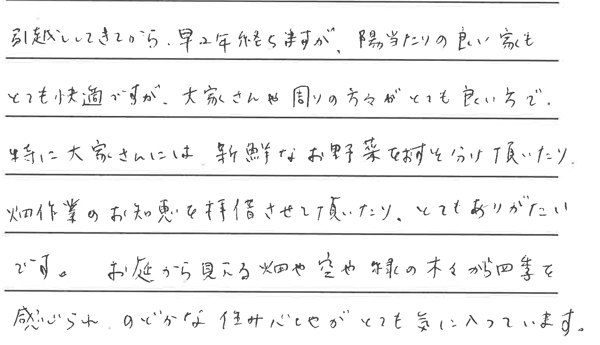 引越してきてから、早2年経ちますが、陽当たりの良い家も
とても快適ですが、大家さんや周りの方々がとても良い方で、
特に大家さんには、新鮮なお野菜をおすそ分け頂いたり、
畑作業のお知恵を拝借させて頂いたり、とてもありがたい
です。 お庭から見える畑や空や緑の木々から四季を
感じられ、のどかな住み心地がとても気に入っています。